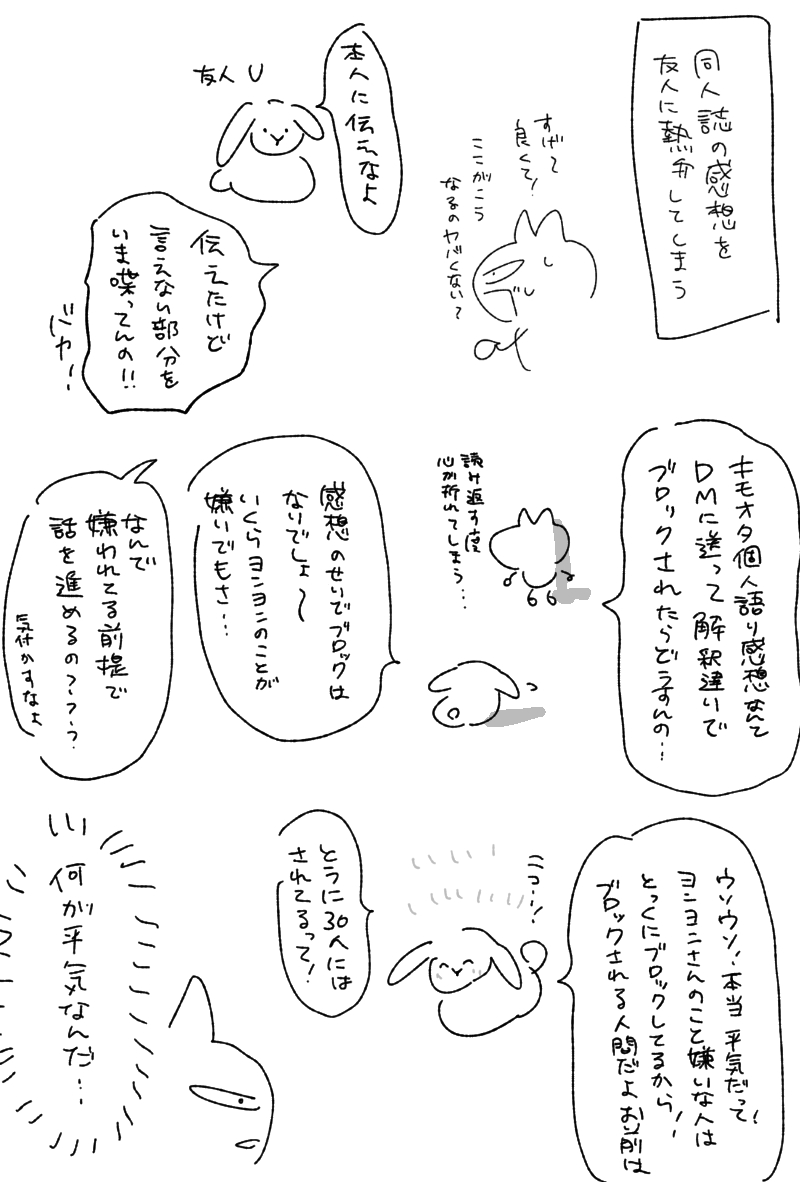 同人誌の感想を
友人に熱弁してしまう
すげー
良くて!
ここがこう
なるのヤバくない?
本人に伝えなよ
友人U
伝えたけど
言えない部分を
いま喋ってんの!!
バカ!
キモオタ個人語り感想なんて
DMに送って解釈違いで
ブロックされたらどうすんの…
読み返す度
心が折れてしまう…
感想のせいでブロックは
ないでしょ〜
いくらヨンヨンのことが
嫌いでもさ…
なんで
嫌われてる前提で
話を進めるの???
気付かすなよ
ウソウソ!本当平気だって!
ヨンヨンさんのこと嫌いな人は
とっくにブロックしてるから!!
ブロックされる人間だよお前は
ニコー!
とうに30人には
されてるって!
何が平気なんだ…